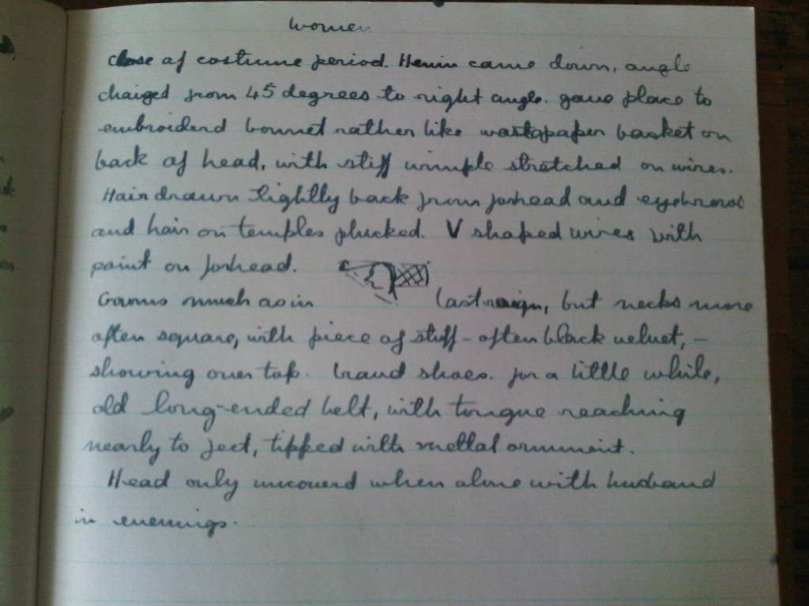 Women
Close of costume period. Henin came down, angle
changed from 45 degrees to right angle. gave place to
embroiderd bonnet rather like wastepaper basket on
back of head, with stiff wimple stretched on wires.
Hair drawn tightly back from forhead and eyebrows
and hair on temples plucked. V shaped wires with
point on forhead.
Gowns much as in last reign, but necks more
often square, with piece of stuff - often black velvet, -
showing over top. braud shoes. for a little while,
old long-ended belt, with tongue reaching
nearly to feet, tipped with mettal ornament.
Head only uncoverd when alone with husband
in evenings.